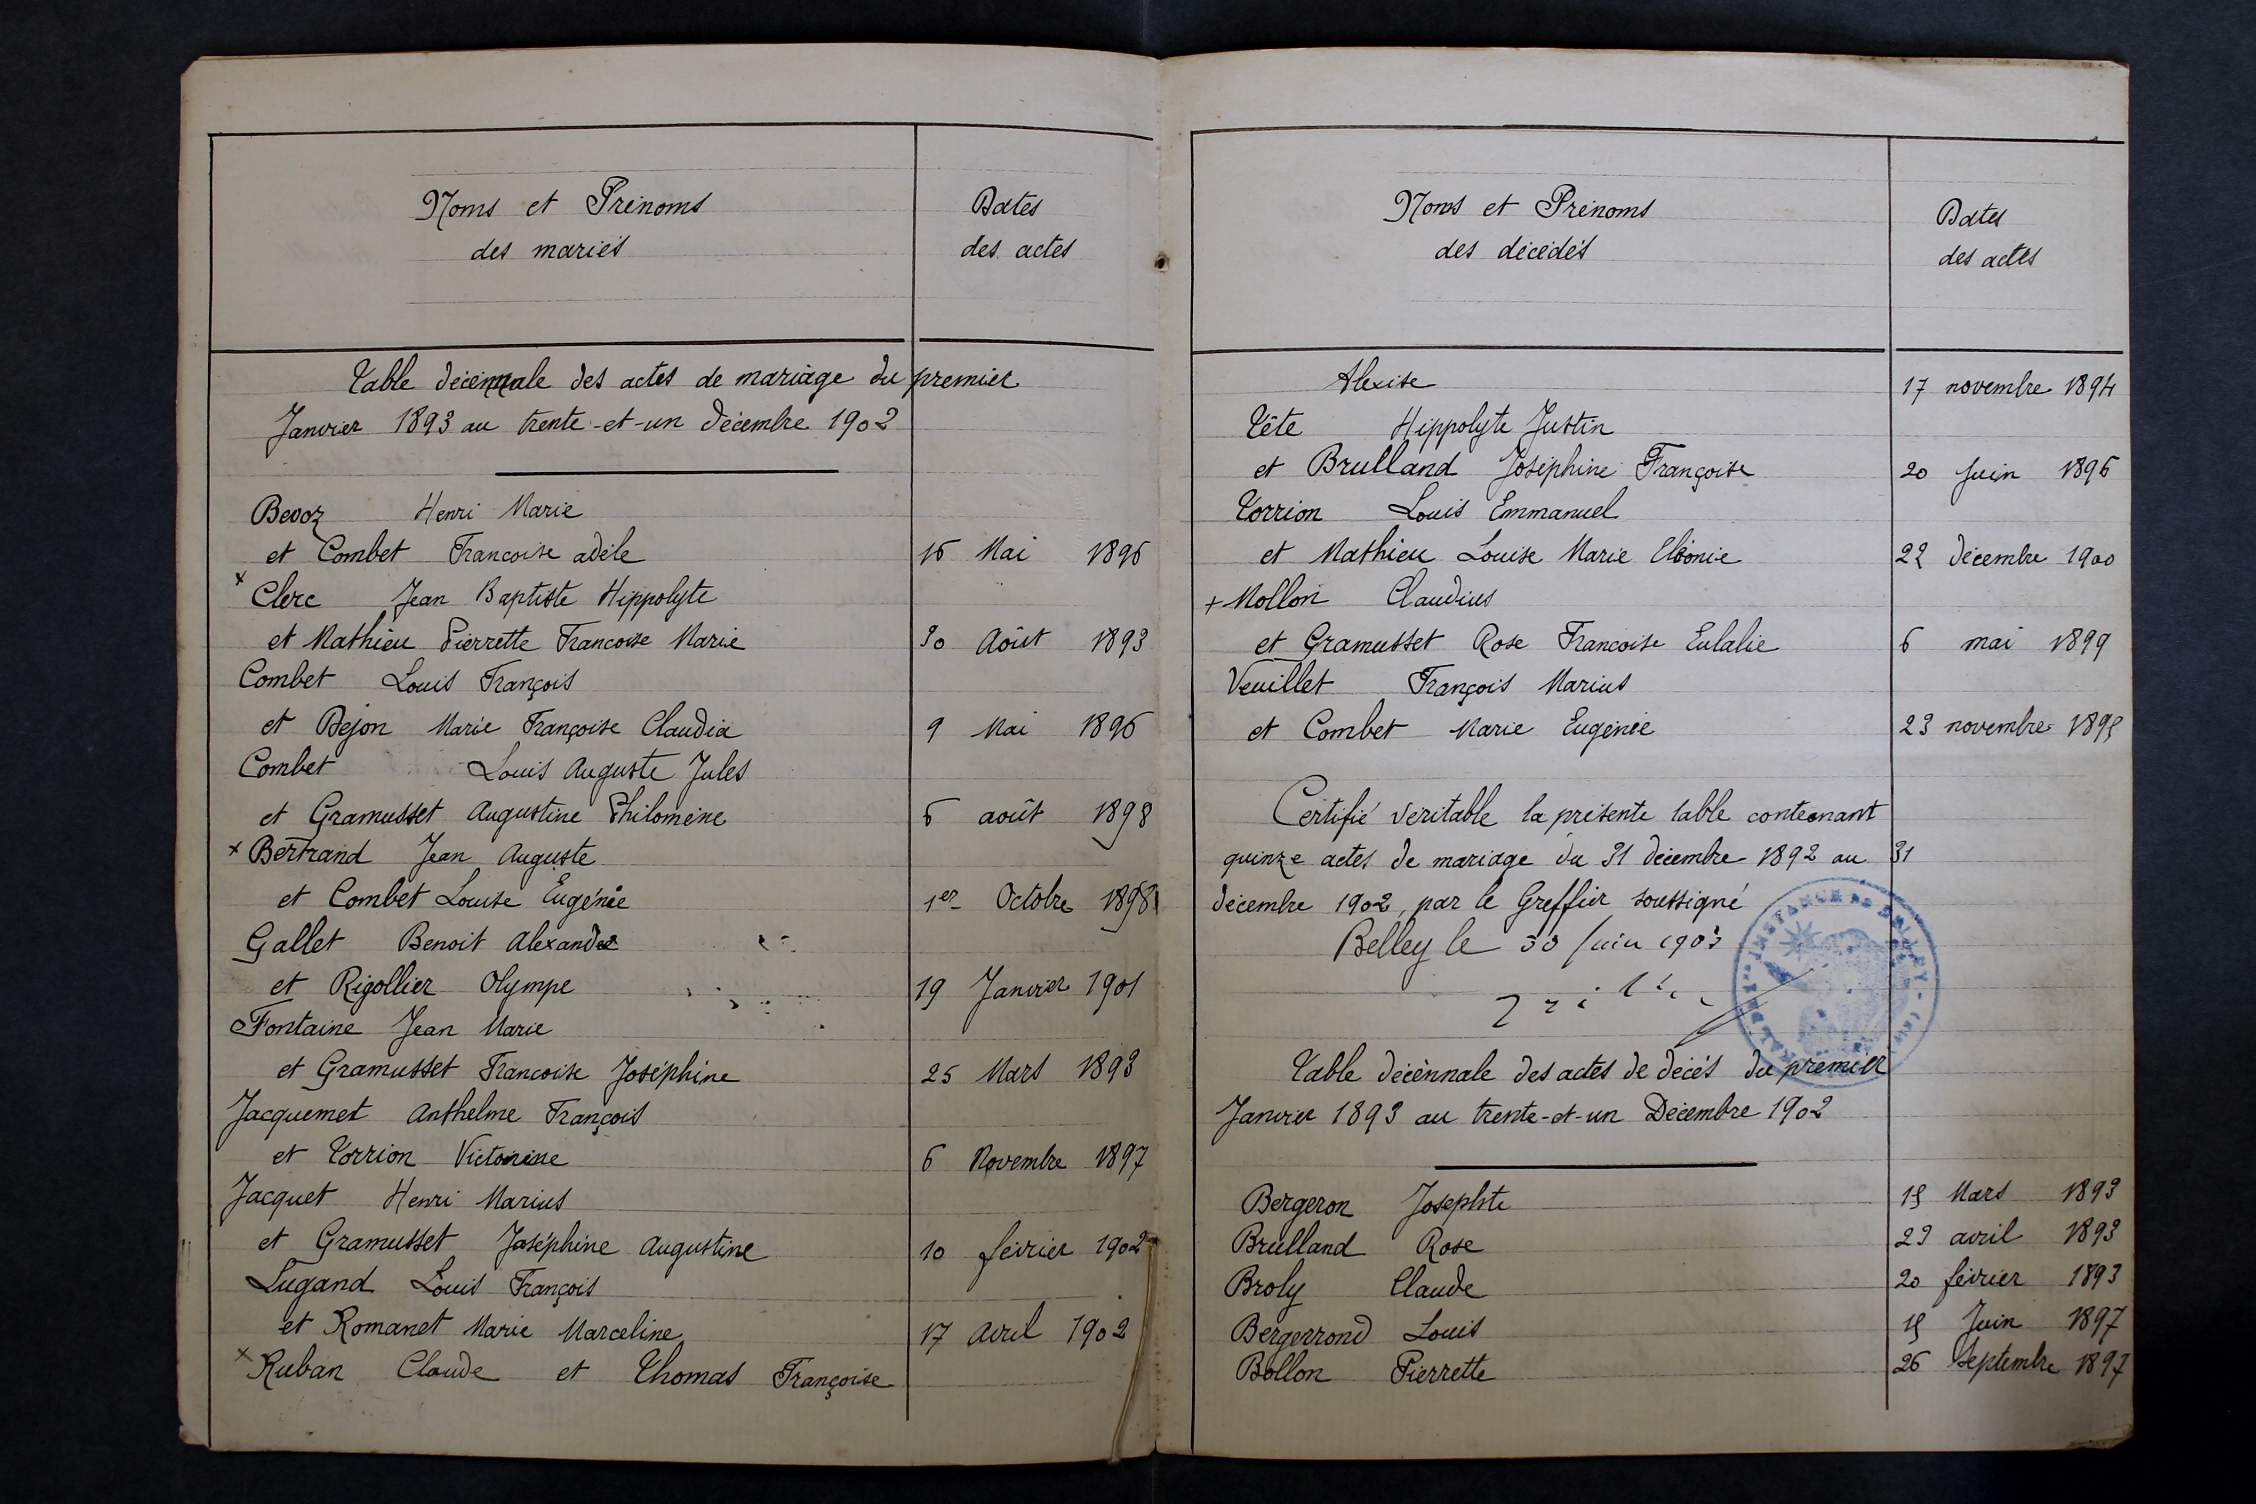 Noms et Prénoms
des mariés
Dates
des actes
Table décennale des actes de mariage du premier
Janvier 1893 au trente-et-un décembre 1902
Bevoz Henri Marie
et Combet Francoise adèle 16 Mai 1896
x Clerc Jean Baptiste Hippolyte
et Mathieu Pierrette Francoise Marie 30 Août 1893
Combet Louis François
et Dejon Marie Françoise Claudia 9 Mai 1896
Combet Louis Auguste Jules
et Gramusset Augustine Philomène 6 août 1898
x Bertrand Jean Auguste
et Combet Louise Eugénie 1er Octobre 1898
Gallet Benoit Alexandre
et Rigollier Olympe 19 Janvier 1901
Fontaine Jean Marie
et Gramusset Francoise Joséphine 25 Mars 1893
Jacquemet Anthelme François
et Torrion Victorine 6 Novembre 1897
Jacquet Henri Marius
et Gramusset Joséphine Augustine 10 février 1902
Lugand Louis François
et Romanet Marie Marceline 17 Avril 1902
x Ruban Claude et Thomas Françoise
Noms et Prénoms
des décédés
Dates
des actes
Alexise 17 novembre 1894
Tête Hippolyte Justin
et Brulland Joséphine Françoise 20 Juin 1896
Torrion Louis Emmanuel
et Mathieu Louise Marie Léonie 22 décembre 1900
+ Mollon Claudius
et Gramusset Rose Francoise Eulalie 6 mai 1899
Veuillet François Marius
et Combet Marie Eugénie 23 novembre 1895
Certifié véritable la présente table contenant
quinze actes de mariage du 31 décembre 1892 au 31
décembre 1902, par le Greffier soussigné
Belley le 30 Juin 1903
Table décènnale des actes de décés du premier
Janvier 1893 au trente-et-un Décembre 1902
Bergeron Josephte 15 Mars 1893
Brulland Rose 23 avril 1893
Broly Claude 20 février 1893
Bergerrond Louis 15 Juin 1897
Bollon Pierrette 26 Septembre 1897